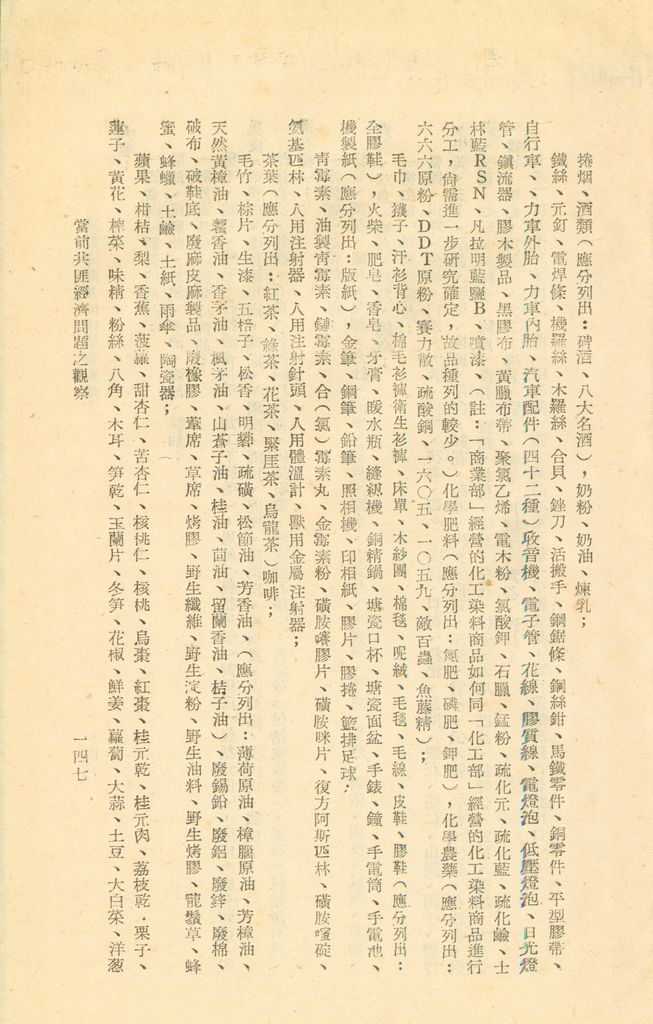 捲烟、酒類(應分列出:啤酒、八大名酒),奶粉、奶油、煉乳;
鐵絲、元釘、電焊條、機羅絲、木羅絲、合貝、銼刀、活搬手、鋼鋸條、鋼絲鉗、馬鐵零件、銅零件、平型膠帶、
自行車、、力車外胎、力車內胎、汽車配件(四十二種)收音機、電子管、花線、膠質線、電燈泡、低壓燈泡、日光燈
管、鎭流器、膠木製品、黑膠布、黃臘布帶、聚氯乙烯、電木粉、氯酸鉀、石臘、錳粉、疏化元、疏化藍、疏化鹼、士
林藍RSN、凡拉明藍鹽B、噴漆、(註:「商業部」經營的化工染料商品如何同「化工部」經營的化工染料商品進行
分工,尙需進一步研究確定,故品種列的較少。)化學肥料(應分列出:氮肥、磷肥、鉀肥),化學農藥(應分列出:
六六六原粉、DDT原粉、賽力散、疏酸銅、一六〇五、一〇五九、敵百蟲、魚藤精);
毛巾、襪子、汗衫背心、棉毛衫褲衞生衫褲、床單、木紗團、棉毯、呢絨、毛毯、毛線、皮鞋、膠鞋(應分列出:
全膠鞋),火柴、肥皂、香皂、牙膏、暖水瓶、縫級機、鋼精鍋、塘瓷口杯、塘瓷面盆、手錶、鐘、手電筒、手電池、
機製紙(應分列出:版紙),金筆、鋼筆、鉛筆、照相機、印相紙、膠片、膠捲、籃排足球;
靑霉素、油製靑霉素、鏈霉素、合(氯)霉素丸、金霉素粉、磺胺嘧膠片、磺胺咪片、復方阿斯匹林、磺胺噻碇、
氨基匹林、人用注射器、人用注射針頭、人用體溫計、獸用金屬注射器;
茶葉(應分列出:紅茶、綠茶、花茶、緊压茶、烏龍茶)咖啡;
毛竹、棕片、生漆、五棓子、松香、明礬、疏磺、松節油、芳香油、(應分列出:薄荷原油、樟腦原油、芳樟油、
天然黃樟油、藿香油、香茅油、楓茅油、山蒼子油、桂油、茴油、留蘭香油、桔子油)、廢錫鉛、廢鋁、廢鋅、廢棉、
破布、破鞋底、廢麻皮麻製品、廢橡膠、葦席、草席、烤膠、野生纖維、野生淀粉、野生油料、野生烤膠、龍鬚草、蜂
蜜、蜂蠟、土鹼、土紙、雨傘、陶瓷器;
蘋果、柑桔、梨、香蕉、菠蘿、甜杏仁、苦杏仁、核桃仁、核桃、烏棗、紅棗、桂元乾、桂元肉、荔枝乾.栗子、
蓮子、黃花、榨菜、味精、粉絲、八角、木耳、笋乾、玉蘭片、冬笋、花椒、鮮姜、蘿蔔、大蒜、土豆、大白菜、洋葱
當前共匪經濟問題之觀察
一四七